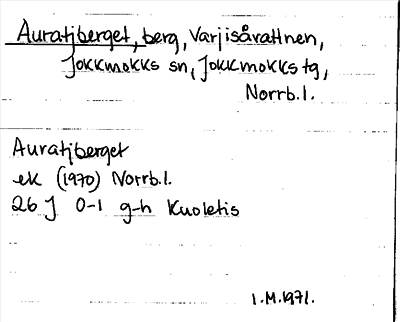 Auratjberget, berg, Varjisåvattnen,
Jokkmokks sn, Jokkmokks tg,
Norrb. l.
Auratjberget
ek (1970) Norrb. l.
26 J 0-1 g-h Kuoletis
I.M. 1971.